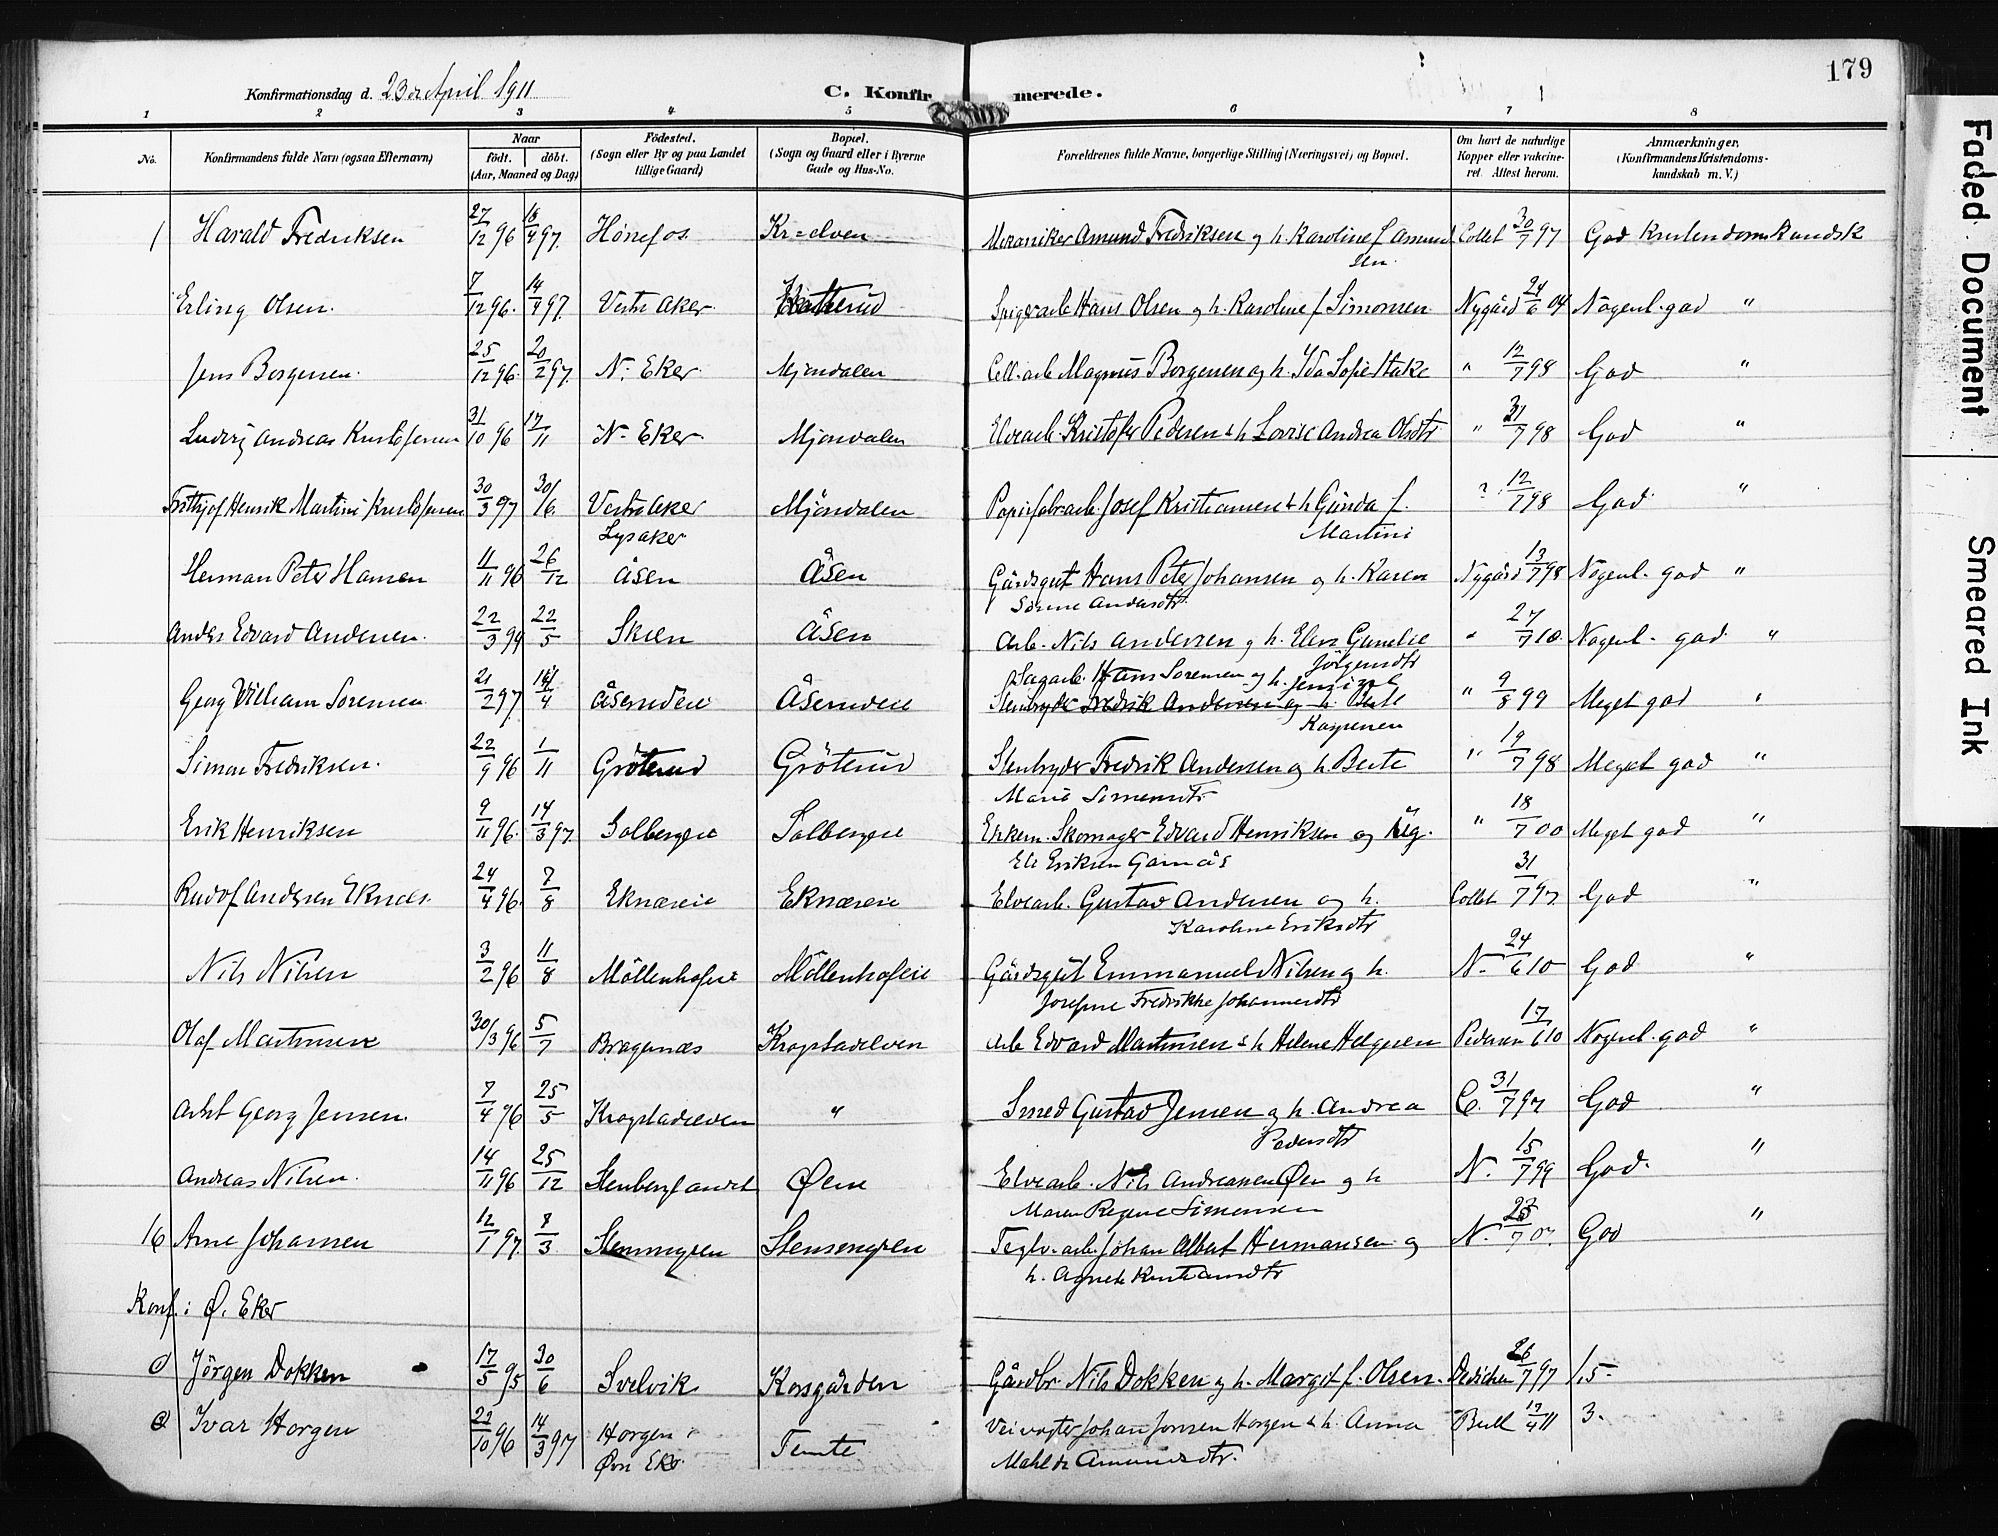 179
Konfirmationsdag d. 23de April 1911
C. Konfirmerede.
1 2 3 4 5 6 7 8
No. Konfirmandens fulde Navn (ogsaa Efternavn) Naar født. døbt. (Aar, Maaned og Dag) Fødested. (Sogn eller By og paa Landet tillige Gaard) Bopæl. (Sogn og Gaard eller i Byerne Gade og Hus-No. Forældrenes fulde Navne, borgerlige Stilling (Næringsvei) og Bopæl. Om havt de naturlige Kopper eller vakcineret. Attest herom. Anmærkninger. (Konfirmandens Kristendomskundskab m. V.)
1 Harald Fredriksen 27/12 96 18/4 97. Hønefos. Kr=elven Mekaniker Amund Fredriksen og h. Karoline f Amundsen. Collet 30/7 97 God Kristendomskundsk
Erling Olsen. 7/12 96. 14/4 97. Vestre Aker. Spigerarb Hans Olsen og h. Karoline f Simonsen Nygård 24/6 04 Nogenl. god "
Jens Borgersen. 25/12 96. 20/2 97. N. Eker. Mjøndalen Cell. arb Magnus Borgersen og h. Ida Sofie Stake " 12/7 98 God "
Ludvig Andreas Kristofersen 31/10 96 17/11 N. Eker Mjøndalen Elvearb. Kristofer Pedersen & h Lovise Andrea Olsdtr " 31/7 98 God "
Frithjof Henrik Martini Kristofersen 30/3 97 30/6. Vestre Aker Lysaker Mjøndalen Papirfabr.arb. Josef Kristiansen & h Gunda f. Martini " 12/7 98 God "
Herman Peter Hansen 11/11 96 26/12 Åsen Åsen Gårdsgut Hans Peter Johansen og h. Karen Sørine Andersdtr. Nygård 13/7 98 Nogenl. god "
Anders Edvard Andersen. 22/3 94 22/5 Skien Åsen Arb. Nils Andersen og h. Elen Gunelie Jørgensdtr " 27/7 10. Nogenl. god "
Georg Vilhelm Sørensen 21/2 97. 14/4 Åserudeie Åserudeie Sagarb. Hans Sørensen og h. Kaspersen Stenbryder Fredrik Andersen og h. Berte " 9/8 99 Meget god "
Simon Fredriksen. 22/9 96 1/11 Grøterud Grøterud Stenbryder Fredrik Andersen og h Berte Marie Simensdtr " 19/7 98 Meget god "
Erik Henriksen 9/11 96. 14/3 97. Solbergeie Solbergeie Enkem. Skomager Edvard Henriksen og Eli Eriksen " 18/7 00 Meget god "
Rudof Andersen Eknes. 24/4 96. 7/8 Ekneseie Ekneseie Elvearb. Gustav Andersen og h. Karoline Eriksdtr Collet 31/7 97 God "
Nils Nilsen 3/2 96 11/8 Møllenhofeie Møllenhofeie Gårdsgut Emmanuel Nilsen og h. Josefine Fredrikke Johannesdtr N. 24/6 10 God "
Olaf Martinsen 30/3 96 5/7 Bragernæs Krogstadelven Arb Edvard Martinsen & h Helene Helgesen Pedersen 17/6 10 Nogenl. god "
Georg Jensen. 7/4 96 25/5 Krogstadelven " Smed Gustav Jensen og h. Andrea Pedersdtr C. 31/7 97 God "
Andreas Nilsen. 14/11 96 25/12 Stenberglandet Øene Elvearb. Nils Andreassen Øen og h Maren Regine Simensen N. 15/7 99 God. "
16 Arne Johansen 12/1 97. 7/3 Stensengen Stensengen Teglv. arb. Johan Albert Hermansen og h. Agnete Kristiansdtr N. 23/7 07. God "
Konf. i Ø. Eker
Jørgen Dokken 17/5 95 30/6 Svelvik Korsgården Gårdbr Nils Dokken og h. Margit f. Olsen. Dedichen 26/7 97 1.5
Ivar Horgen 22/10 96 14/3 97 Horgen Øvr Eker Temte Veivogter Johan Jonsen Horgen & h. Anna Mahlde Amundsdtr. Bull 12/4 11 3.
Faded Document
Smeared Ink